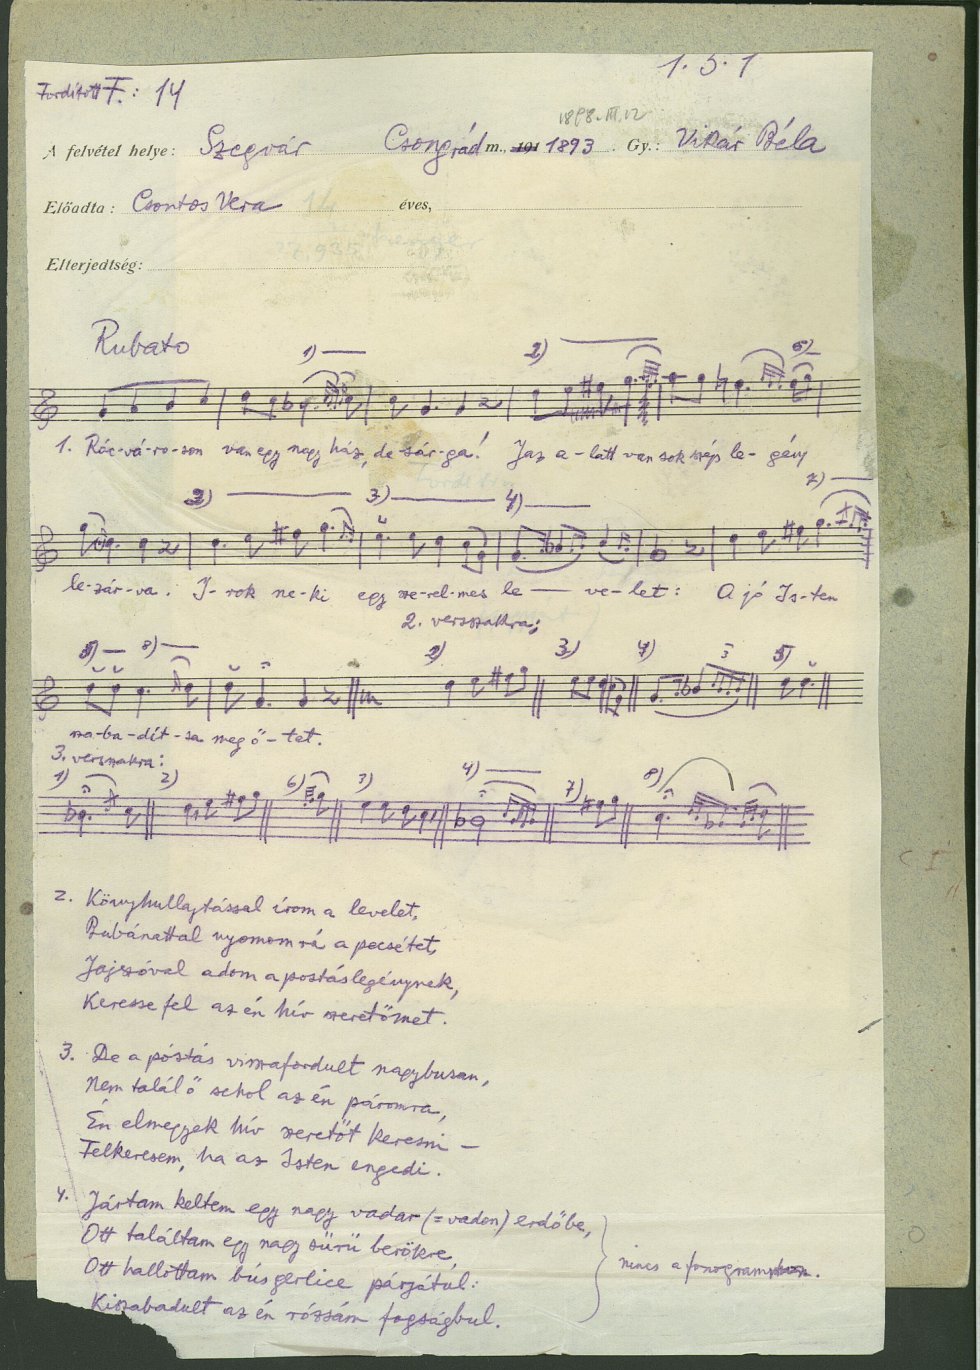 1. 5. 1
Fordított F.: 14
1898. III. 12
A felvétel helye: Szegvár Csongrád m., 191 1893. Gy.: Vikár Béla
Előadta: Csontos Vera 14 éves,
Elterjedtség:
Rubato
1) 2) 6)
1. Rác-vá-ro-son van egy nagy ház, de sár-ga! Jaz a-latt van sok szép le-gény
2) 3) 4) 7)
le-zár-va. I-rok ne-ki egy sze-rel-mes le — ve-let: A jó Is-ten
2. versszakra:
5) 8) 2) 3) 4) 3 5)
sza-ba-dít-sa meg ő-tet.
3. versszakra:
1) 2) 6) 3) 4) 7) 8)
2. Könyhullajtással írom a levelet,
Bubánattal nyomom rá a pecsétet,
Jajszóval adom a postáslegénynek,
Keresse fel az én hív szeretőmet.
3. De a póstás visszafordult nagybusan,
Nem talál ő sehol az én páromra,
Én elmegyek hív szeretőt keresni —
Felkeresem, ha az Isten engedi.
4. Jártam keltem egy nagy vadar (= vadon) erdőbe,
Ott találtam egy nagy sürü berökre,
Ott hallottam bús gerlice párjátul:
Kiszabadult az én rózsám fogságbul.
nincs a fonogramban.